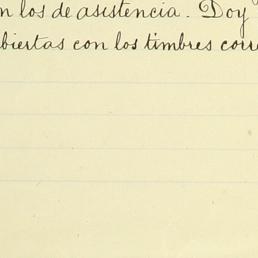 n los de asistencia. Doy
biertas con los timbres corre